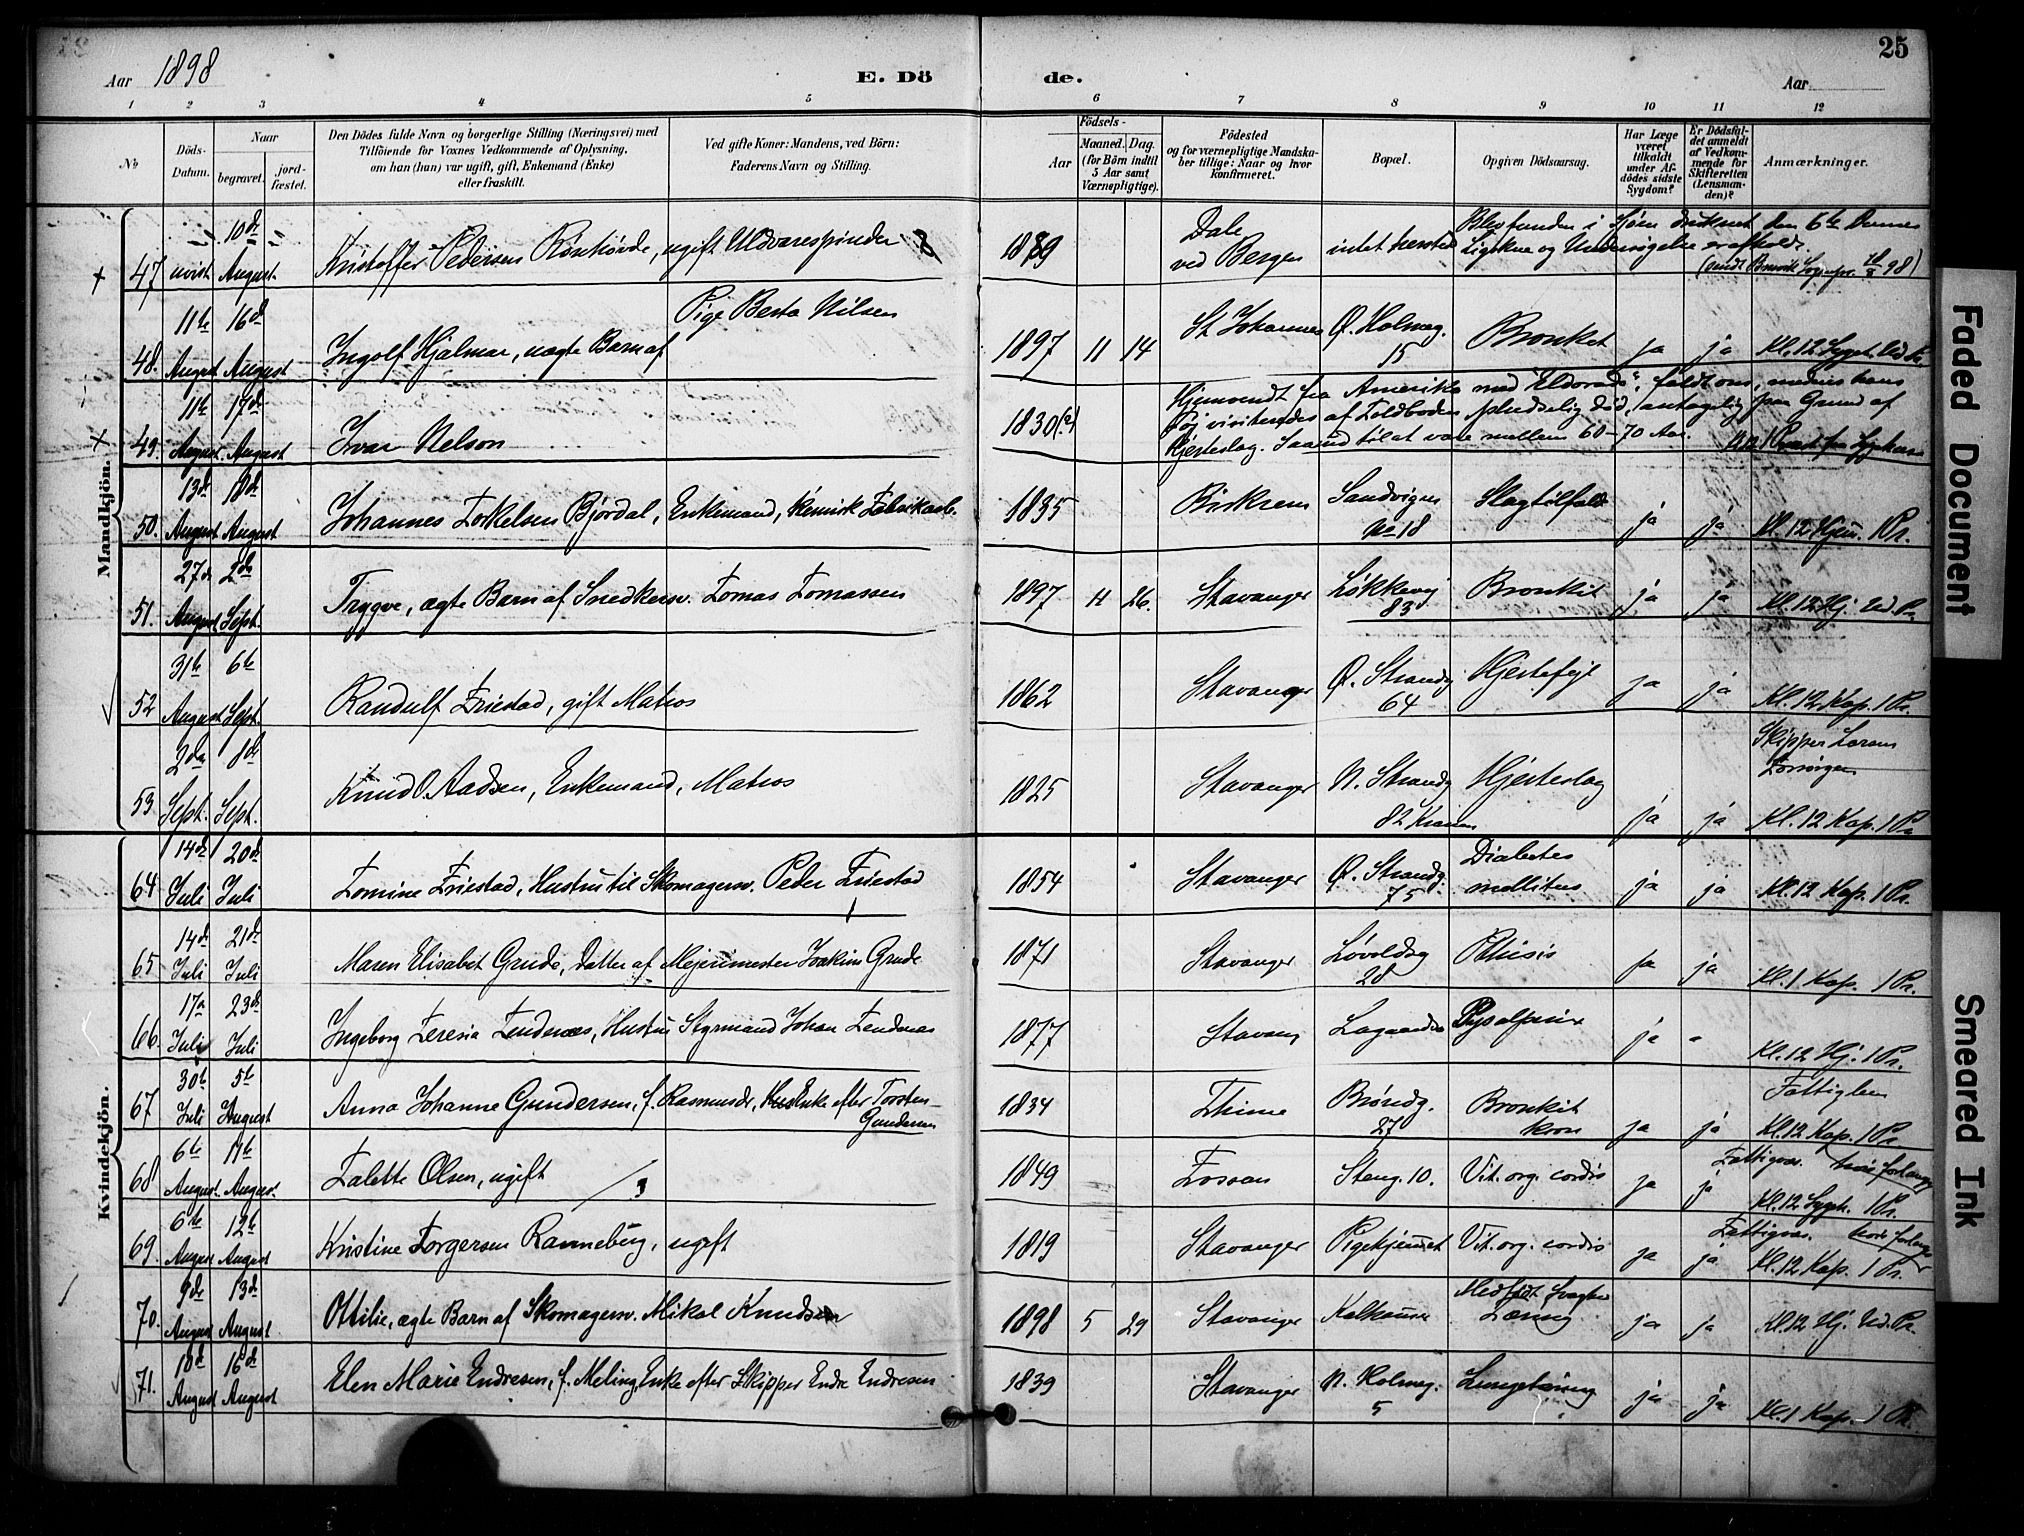 Aar 1898
E. Döde.
25
Aar
1 2 3 4 5 6 7 8 9 10 11 12
No
Döds-Datum.
Naar
begravet.
jord-fæstet.
Den Dödes fulde Navn og borgerlige Stilling (Næringsvei) med
Tilföiende for Voxnes Vedkommende af Oplysning,
om han (hun) var ugift, gift, Enkemand (Enke)
eller fraskilt.
Ved gifte Koner: Mandens, ved Börn:
Faderens Navn og Stilling.
Födsels-
Aar
Maaned. Dag.
(for Börn indtil
5 Aar samt
Værnepligtige).
Födested
og for værnepligtige Mandska-
ber tillige: Naar og hvor
konfirmeret.
Bopæl.
Opgiven Dödsaarsag.
Har Læge
været
tilkaldt
under Af-
dödes sidste
Sygdom?
Er Dödsfal-
det anmeldt
af Vedkom-
mende for
Skifteretten
(Lensman-
den)?
Anmærkninger.
Mandkjön.
47 uvist 10de August Kristoffer Pedersen, ugift 1889 Dale ved Bergen
i Sjøen druknet den 6te Dennes
48. 11te August 16de August Ingolf Hjalmar, uægte Barn af Pige Berta Nilsen 1897 11 14 St Johannes Ø. Holmeg. 15 Bronkit ja ja
49. 11te August 17de August Ivar Nelson 1830(?) Hjemvendt fra Amerika med "Eldorado", faldt om, medens hans
Tøj visiteredes af Toldboden pludselig død, antagelig paa Grund af
Hjerteslag. Saa ud til at være mellem 60-70 Aar.
50. 13de August 18de August Johannes Torkelsen Bjørdal, Enkemand, kemisk Fabrikarb. 1835 Birkrem Sandvigen No 18 Slagtilfælde ja ja Kl. 12 Hjem. 1 Pr.
51. 27de August 2den Sept. Trygve, ægte Barn af Snedkersv. Tomas Tomassen 1897 11 26. Stavanger Løkkevej 83 Bronkit ja ja Kl. 12 Hj. Ud. Pr.
52 31te August 6te Sept. Randulf Friestad, gift Matros 1862 Stavanger Ø. Strandg 64 Hjertefejl ja ja Kl. 12 Kap. 1 Pr.
53 2den Sept. 8de Sept. Knud O. Aadsen, Enkemand, Matros 1825 Stavanger N. Strandg 82 Hjerteslag ja ja Skipper
Kl. 12 Kap. 1 Pr
Kvindekjön.
64 14de Juli 20de Juli Tomine Friestad, Hustru til Skomagersv. Peder Friestad 1854 Stavanger Ø. Strandg. 75 Diabetes mellitus ja ja Kl. 12 Kap. 1 Pr.
65 14de Juli 21de Juli Maren Elisabet Grude, Datter af Mejerimester Joakim Grude 1871 Stavanger Løvoldsg 28 Phtisis ja ja Kl. 1 Kap. 1 Pr.
66. 17de Juli 23de Juli Ingeborg Teresia Tendenæs, Hustru Styrmand Johan Tendenæs 1877 Stavang Lagaarden ja " Kl. 12 Hj. 1 Pr.
67 30te Juli 5te August Anna Johanne Gundersen, f. Rasmusdr, Enke efter Torsten Gundersen 1834 Thime Brøndg. 27 Bronkit kron ja ja Fattiglem
Kl. 12 Kap. 1 Pr
68 6te August. 11te August. Talette Olsen, ugift 1849 Fossan Steng. 10. Vit. org. cordis ja ja Fattigvæs.
Kl. 12 Sygeh. 1 Pr.
69. 6te August 12te August Kristine Torgersen Ranneberg, ugift 1819 Stavanger Pigehjemmet Vit. org. cordis ja ja Fattigvæs.
Kl. 12 Kap. 1 Pr.
70. 9de August 13de August Ottilie, ægte Barn af Skomagersv. Mikal Knudsen 1898 5 29 Stavanger Kalhaune Medfødt Svaghed Tæring ja ja Kl. 12 Hj. Ud. Pr.
71. 10de August 16de August Elen Marie Endresen, f. Meling, Enke efter Skipper Endre Endresen 1839 Stavanger N. Holmeg. 5 Lungetæring ja ja Kl. 1 Kap. 1 Pr.
Faded Document
Smeared Ink